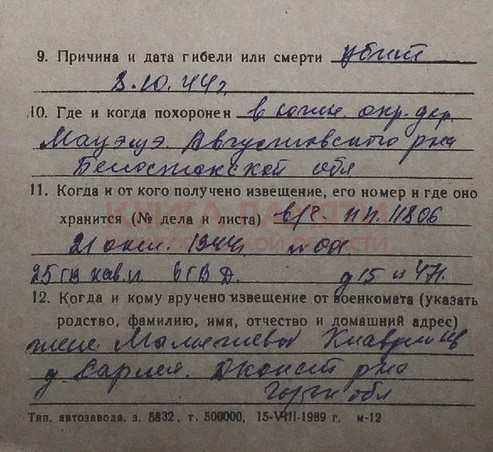 9. Причина и дата гибели или смерти убит
3.10.44г
10. Где и когда похоронен в южн. окр. дер.
Августовского р-на
Белостокской обл
11. Когда и от кого получено извещение, его номер и где оно
хранится (№ дела и листа) в/ч. пп. 11806
21 окт. 1944г
25 гв кав. п д 15 л 471.
12. Когда и кому вручено извещение от военкомата (указать
родство, фамилию, имя, отчество и домашний адрес)
жене
д Р-на
обл
Тип. автозавода, з. 5832, т. 500000, 15-VIII-1989 г. м-12
КНИГА ПАМЯТИ